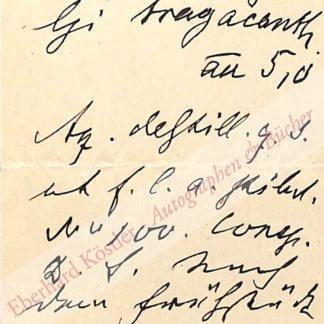 Gi tragacanth.
āā 5,0
Aq. destill. q. s.
ut f. l. a. pilul.
No 100. Consp.
D. S. nach
dem Frühstück
Eberhard Köstler Autographen & Bücher